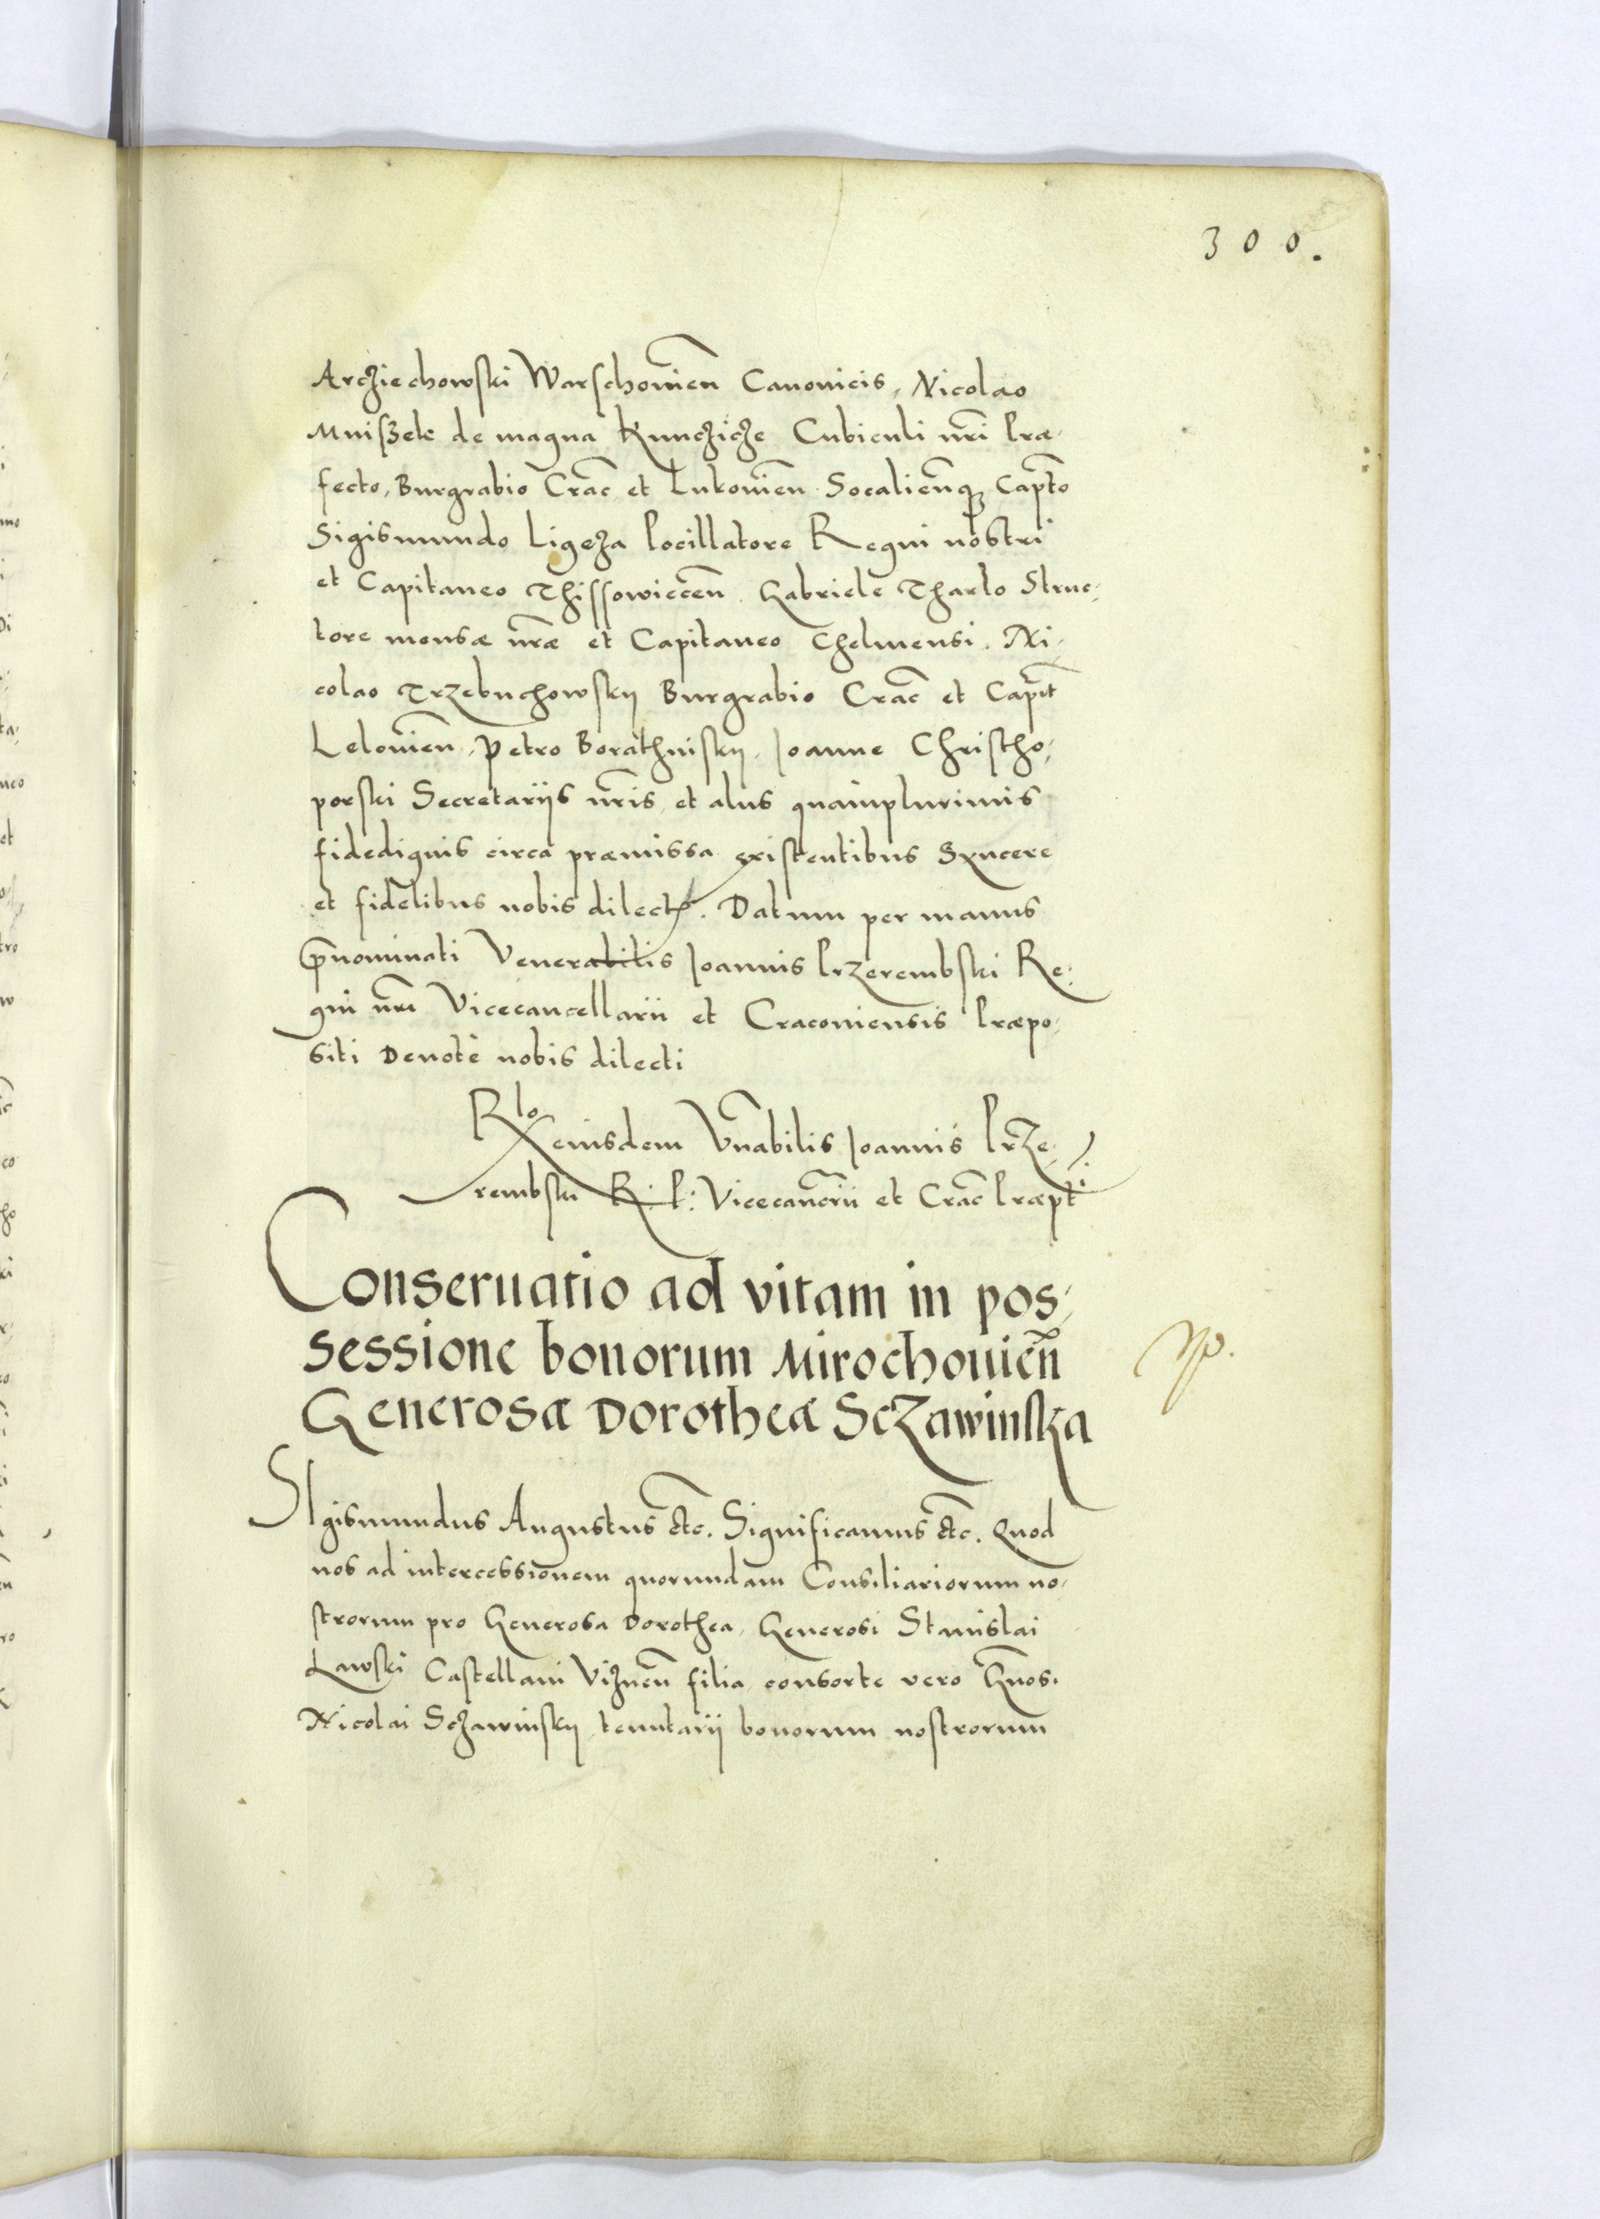 300.
Arcziechowski Warschouien Canonicis, Nicolao
Mniszek de magna Kunczicze Cubiculi nri Præ-
fecto, Burgrabio Crac et Lukouien Socalienq Capto
Sigismundo Ligeza Pocillatore Regni nostri
et Capitaneo Thissowiecen. Gabriele Tharlo Struc-
tore mensæ nræ et Capitaneo Chelmensi. Ni-
colao Trzebuchowskij Burgrabio Crac et Capit
Lelouien, Petro Borathniskij, Joanne Christho-
porski Secretariis nris et aliis quamplurimis
fidedignis circa præmissa existentibus Syncere
et fidelibus nobis dilect. Datum per manus
prenominati Venerabilis Joannis Przerembski Re-
gni nri Vicecancellarii et Cracouiensis Præpo-
siti Deuote nobis dilecti
Rlo eiusdem Vnabilis Joannis Prze-
rembski R. P: Vicecancrii et Crac Præpti
Conseruatio ad vitam in pos-
sessione bonorum Mirochouien
Generosæ Dorotheæ Sczawinska
Sigismundus Augustus etc. Significamus etc. Quod
nos ad intercessionem quorundam Consiliariorum no-
strorum pro Generosa Dorothea, Generosi Stanislai
Lawski Castellani Viznen filia consorte vero Gnos.
Nicolai Sczawinskij tenutarij bonorum nostrorum